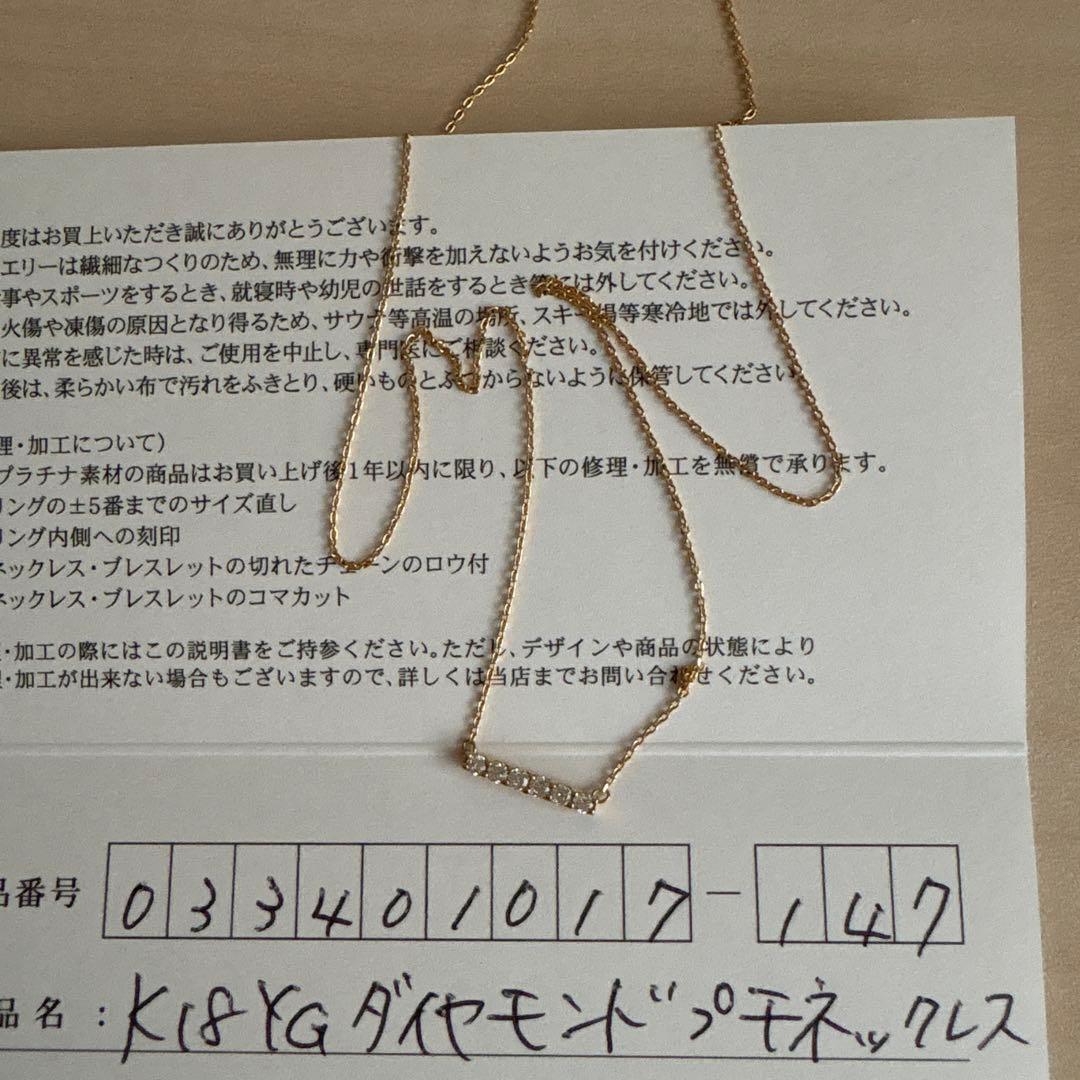 度はお買上いただき誠にありがとうございます。
エリーは繊細なつくりのため、無理に力や衝撃を加えないようお気を付けください。
事やスポーツをするとき、就寝時や幼児の世話をするとき等には外してください。
火傷や凍傷の原因となり得るため、サウナ等高温の場所、スキー場等寒冷地では外してください。
に異常を感じた時は、ご使用を中止し、専門医にご相談ください。
後は、柔らかい布で汚れをふきとり、硬いものとぶつからないように保管してください
理・加工について）
プラチナ素材の商品はお買い上げ後1年以内に限り、以下の修理・加工を無償で承ります。
リングの±5番までのサイズ直し
リング内側への刻印
ネックレス・ブレスレットの切れたチェーンのロウ付
ネックレス・ブレスレットのコマカット
・加工の際にはこの説明書をご持参ください。ただし、デザインや商品の状態により
・加工が出来ない場合もございますので、詳しくは当店までお問い合わせください。
品番号 033401017-147
品名：K18YGダイヤモンドプチネックレス